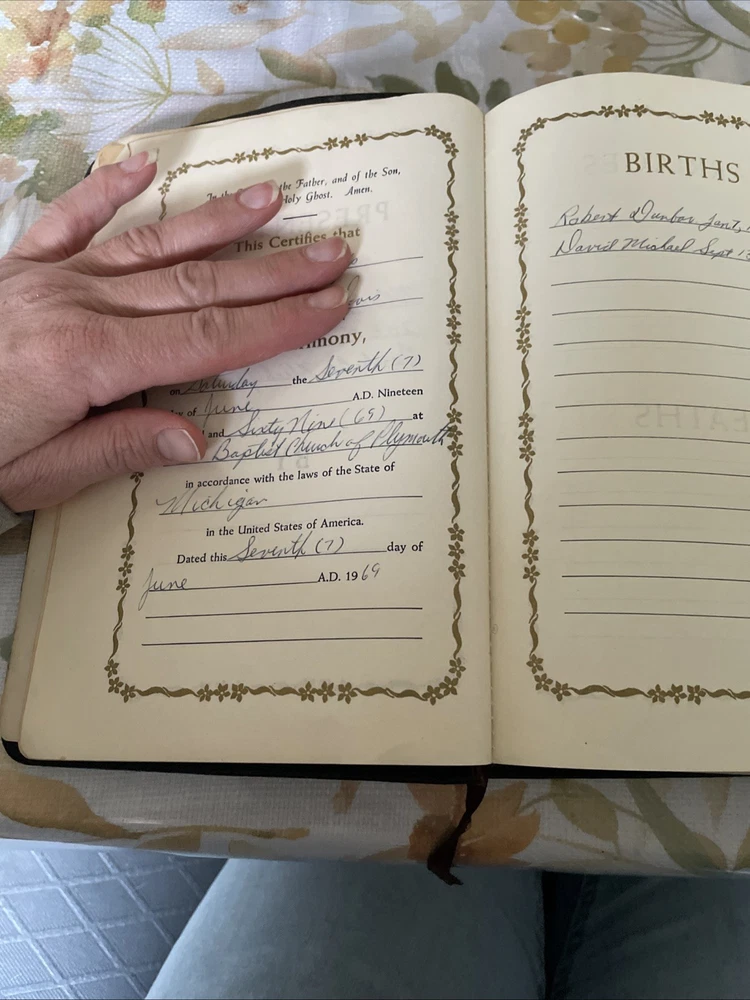 In the the Father, and of the Son,
Holy Ghost. Amen.
This Certifies that
mony,
on Saturday the Seventh (7)
of June A.D. Nineteen
and Sixty Nine (69) at
Baptist Church of Plymouth
in accordance with the laws of the State of
Michigan
in the United States of America.
Dated this Seventh (7) day of
June A.D. 1969
BIRTHS
Robert Dunbar Jan 7,
David Michael Sept